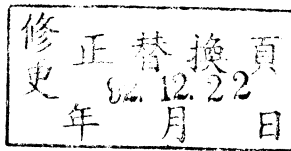 修正替換頁
更 82. 12. 22
年 月 日